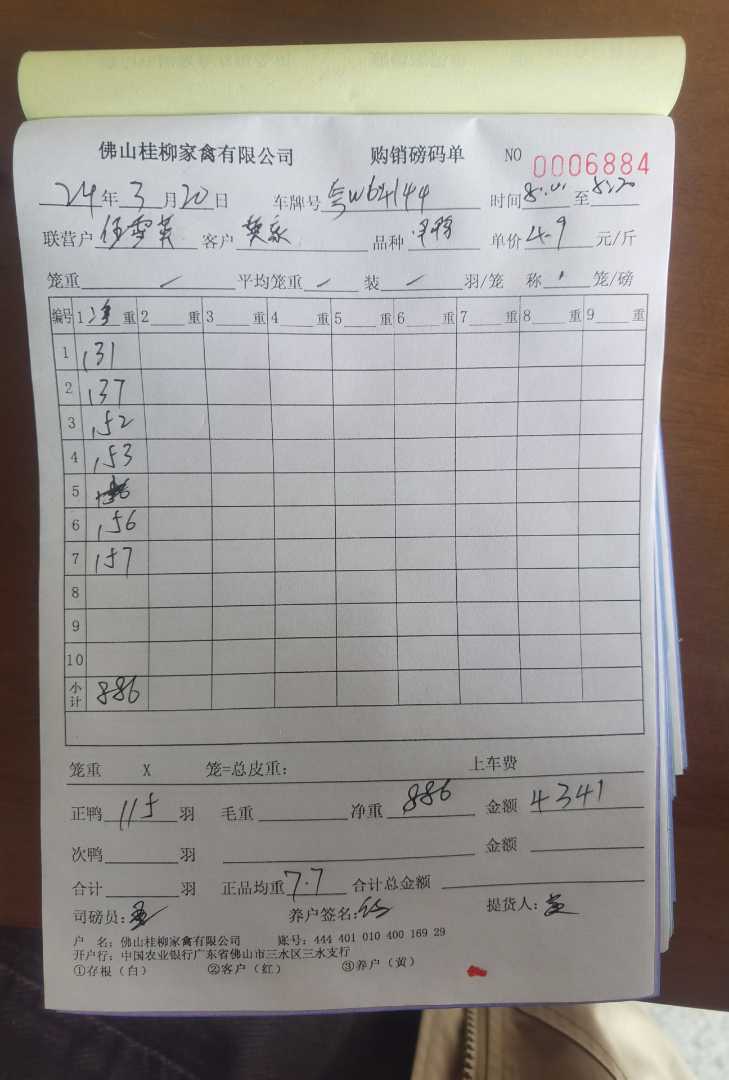 佛山桂柳家禽有限公司 购销磅码单 NO 0006884
24年3月20日 车牌号粤W64144 时间8:01至8:20
联营户伍雪英 客户 品种 单价4.9元/斤
笼重 平均笼重 装 羽/笼 称 笼/磅
编号 1净重 2 重 3 重 4 重 5 重 6 重 7 重 8 重 9 重
1 131
2 137
3 152
4 153
5
6 156
7 157
8
9
10
小计 886
笼重 X 笼=总皮重: 上车费
正鸭115羽 毛重 净重886 金额4341
次鸭 羽 金额
合计 羽 正品均重7.7 合计总金额
司磅员: 养户签名: 提货人:
户 名: 佛山桂柳家禽有限公司 账号: 444 401 010 400 169 29
开户行: 中国农业银行广东省佛山市三水区三水支行
①存根(白) ②客户(红) ③养户(黄)